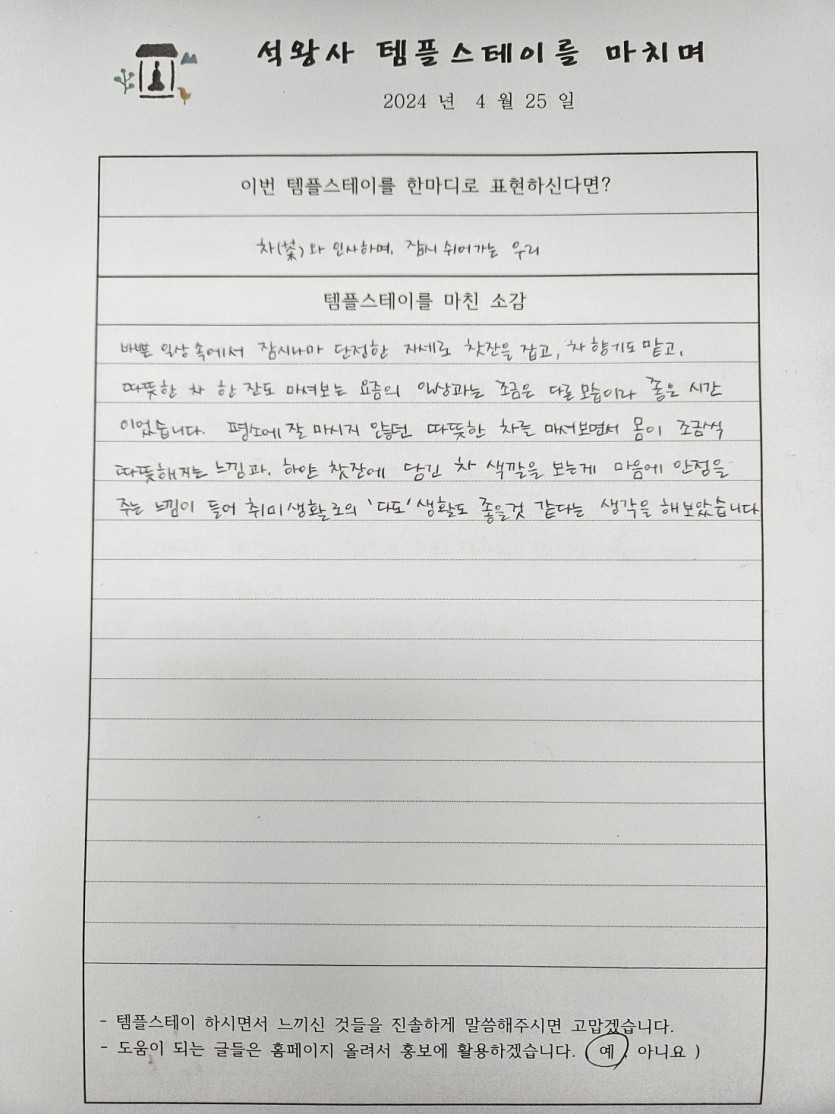 석왕사 템플스테이를 마치며
2024 년 4 월 25 일
이번 템플스테이를 한마디로 표현하신다면?
차(꽃)와 인사하며, 잠시 쉬어가는 우리
템플스테이를 마친 소감
바쁜 일상 속에서 잠시나마 단정한 자세로 찻잔을 잡고, 차 향기도 맡고,
따뜻한 차 한 잔도 마셔보는 요즘의 일상과는 조금은 다를 모습이라 좋은 시간
이었습니다. 평소에 잘 마시지 않던 따뜻한 차를 마셔보면서 몸이 조금씩
따뜻해지는 느낌과, 하얀 찻잔에 담긴 차 색깔을 보는게 마음에 안정을
주는 느낌이 들어 취미생활로의 '다도' 생활도 좋을것 같다는 생각을 해보았습니다
- 템플스테이 하시면서 느끼신 것들을 진솔하게 말씀해주시면 고맙겠습니다.
- 도움이 되는 글들은 홈페이지 올려서 홍보에 활용하겠습니다. ( 예 , 아니요 )